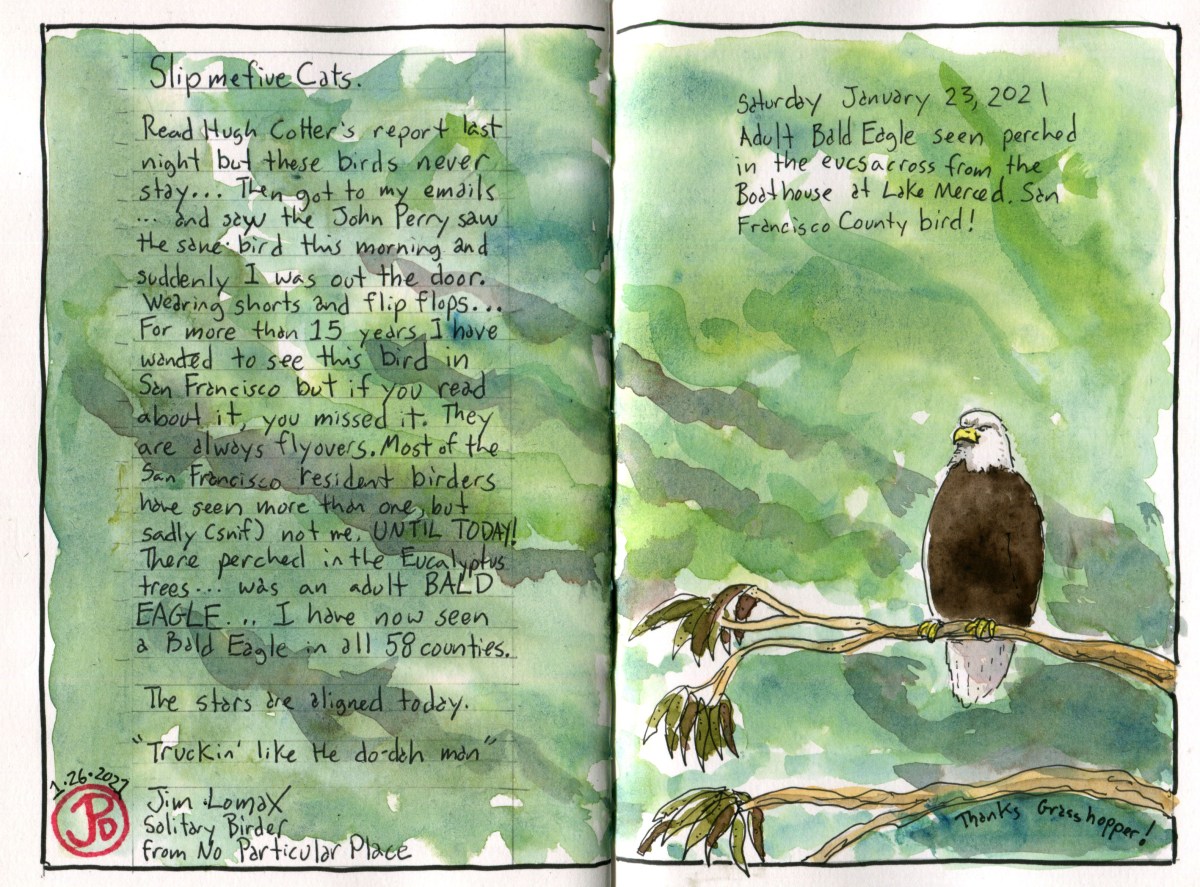 Slip me five Cats.
Read Hugh Cotter's report last
night but these birds never
stay... Then got to my emails
... and saw the John Perry saw
the same bird this morning and
suddenly I was out the door.
Wearing shorts and flip flops...
For more than 15 years I have
wanted to see this bird in
San Francisco but if you read
about it, you missed it. They
are always flyovers. Most of the
San Francisco resident birders
have seen more than one, but
sadly (snif) not me. UNTIL TODAY!
There perched in the Eucalyptus
trees... was an adult BALD
EAGLE... I have now seen
a Bald Eagle in all 58 counties.
The stars are aligned today.
"Truckin' like the do-dah man"
Jim Lomax
Solitary Birder
from No Particular Place
1.26.2021
JPD
Saturday January 23, 2021
Adult Bald Eagle seen perched
in the eucs across from the
Boathouse at Lake Merced. San
Francisco County bird!
Thanks Grasshopper!